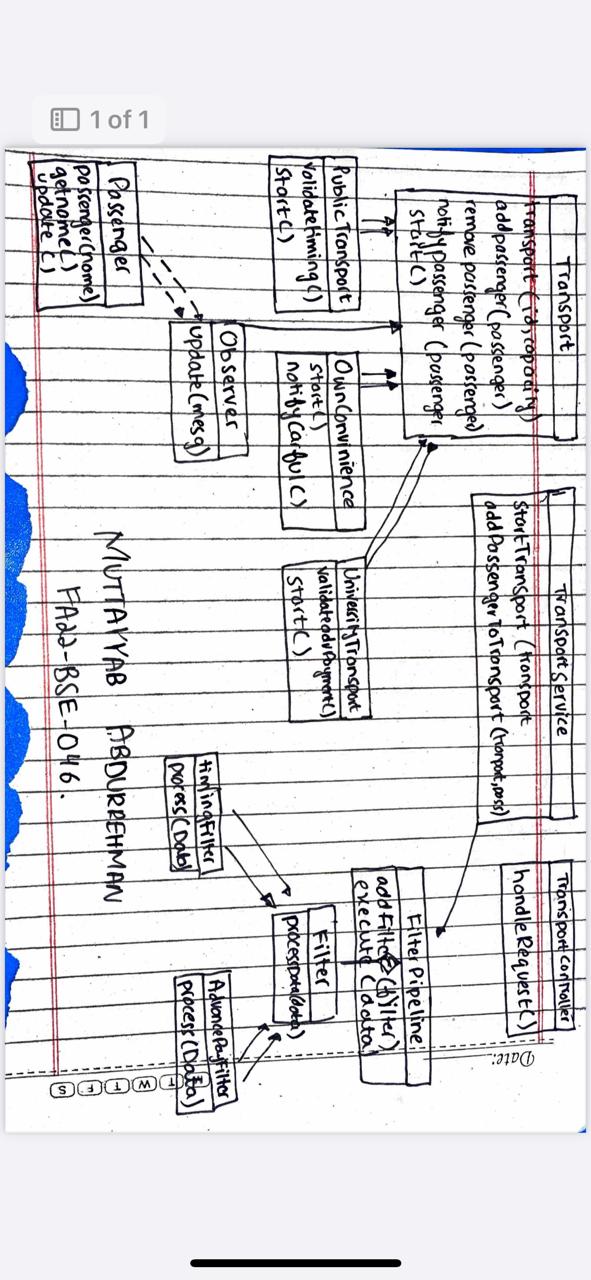 Transport
transport (id, capacity)
addpassenger(passenger)
remove passenger (passenger)
notifypassenger (passenger
start()
TransportService
startTransport (transport
addPassengerToTransport (tranport, pass)
TransportController
handleRequest()
Date:
FilterPipeline
addFilter (filter)
execute (data)
PublicTransport
validatetiming()
start()
OwnConvinience
start()
notifyCarful()
UniversityTransport
validateadvPayment()
start()
Filter
processData(data)
Observer
update(mesg)
timingFilter
process(Data)
AdvancePayFilter
process(Data)
Passenger
passenger(name)
getname()
update ()
MUTTAYYAB ABDURREHMAN
FA22-BSE-046.
T W T F S
1 of 1